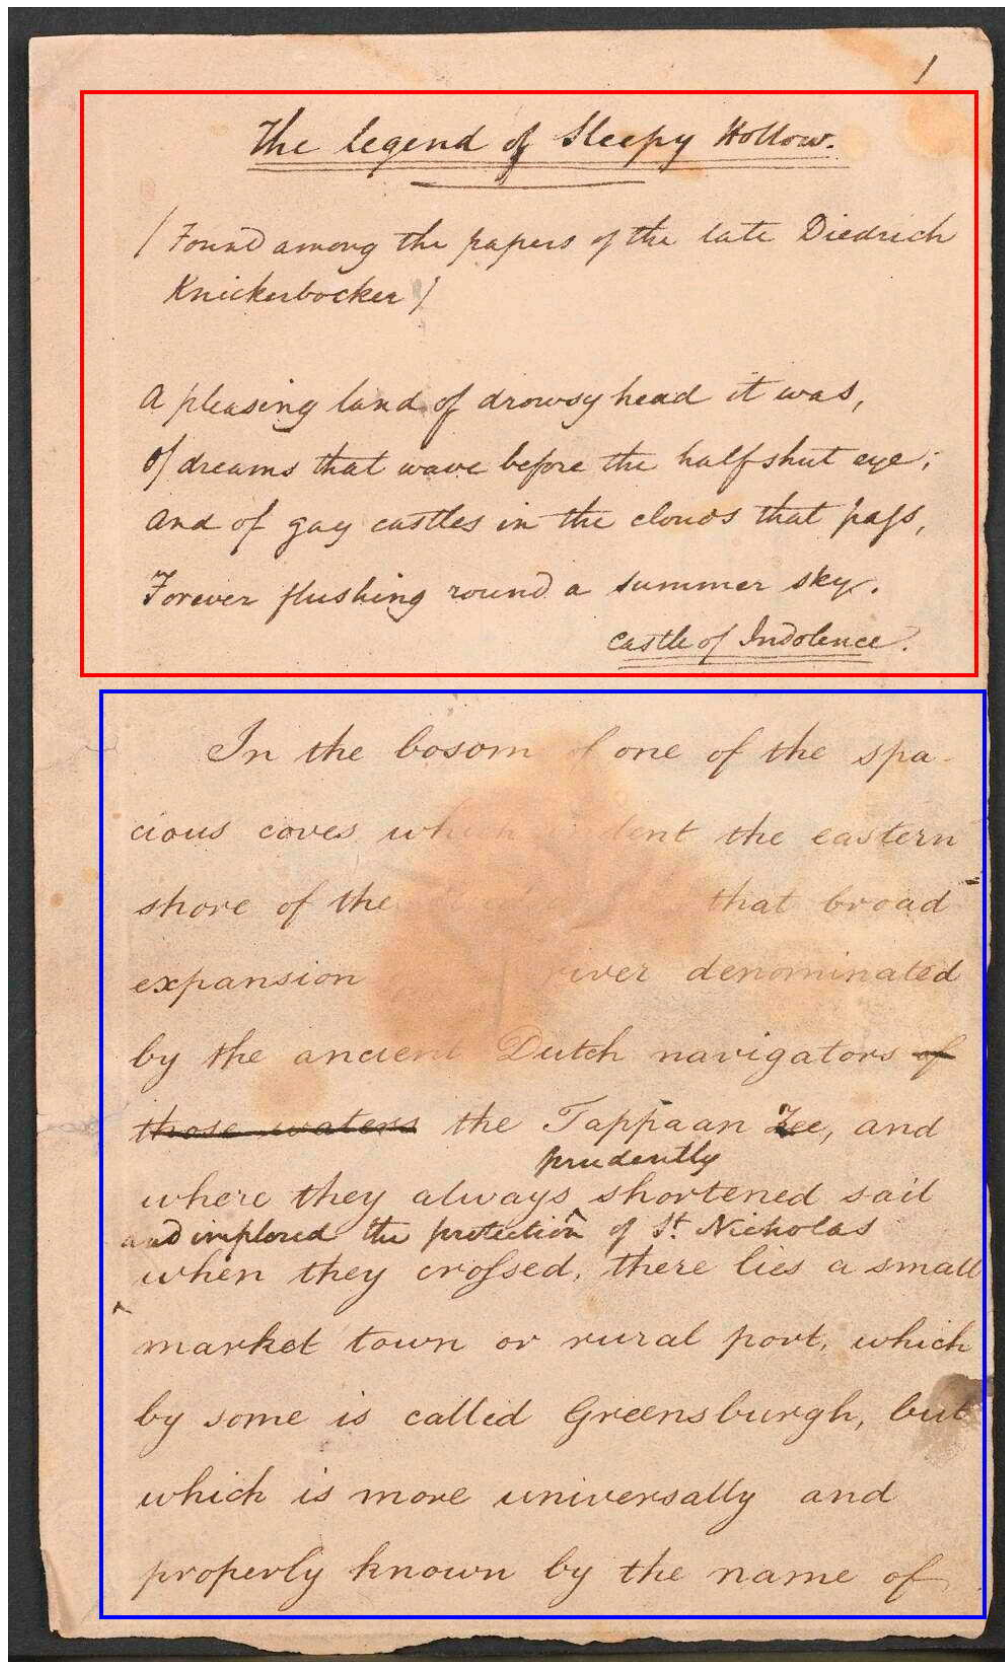 1
The legend of Sleepy Hollow.
(Found among the papers of the late Diedrich
Knickerbocker)
A pleasing land of drowsy head it was,
Of dreams that wave before the half shut eye;
And of gay castles in the clouds that pass,
Forever flushing round a summer sky.
Castle of Indolence.
In the bosom of one of the spa-
cious coves which indent the eastern
shore of the that broad
expansion river denominated
by the ancient Dutch navigators of
those waters the Tappaan Zee, and
prudently
where they always shortened sail
and implored the protection of St. Nicholas
when they crossed, there lies a small
market town or rural port, which
by some is called Greensburgh, but
which is more universally and
properly known by the name of